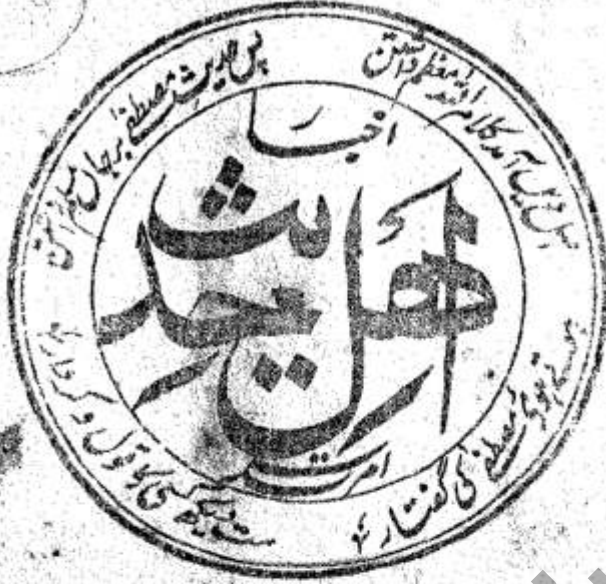 اخبار
اہل حدیث
امرتسر
اصل دین آمد کلام اللہ معظم داشتن
پس حدیث مصطفیٰ بر جاں مسلم داشتن
ہوتے ہوئے مصطفیٰ کی گفتار
مت دیکھ کسی کا قول و کردار